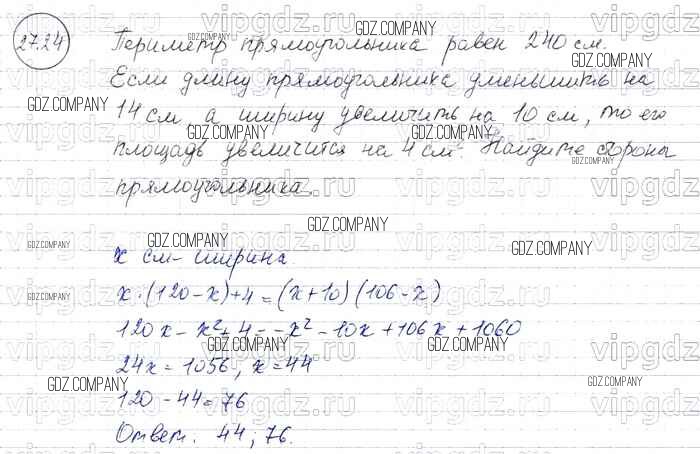 27.24
Периметр прямоугольника равен 240 см.
Если длину прямоугольника уменьшить на
14 см, а ширину увеличить на 10 см, то его
площадь увеличится на 4 см². Найдите стороны
прямоугольника.
x см - ширина
x·(120-x)+4=(x+10)(106-x)
120x-x²+4=-x²-10x+106x+1060
24x=1056, x=44
120-44=76
Ответ. 44; 76.
GDZ.COMPANY
vipgdz.ru